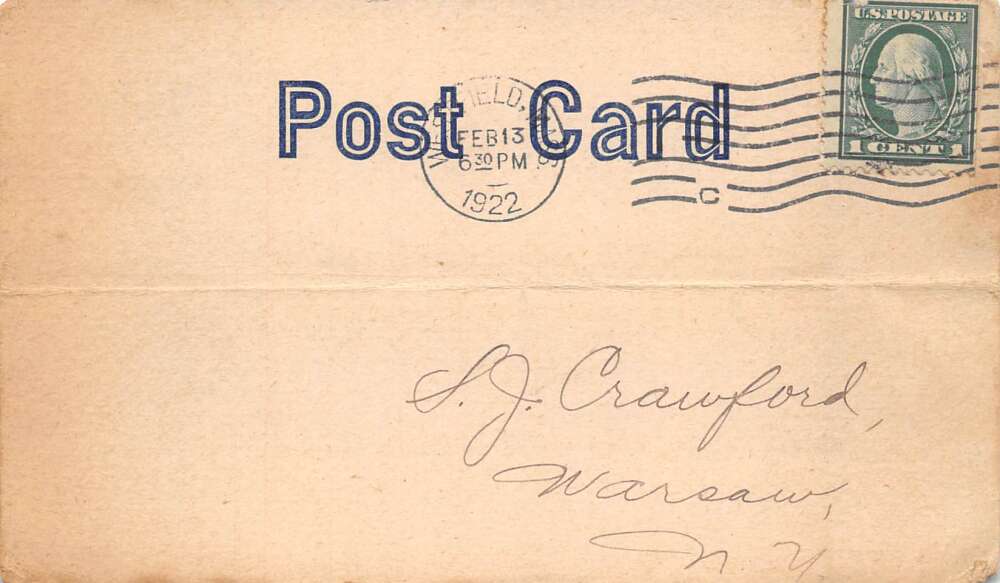 U.S. POSTAGE
1 CENT 1
Post Card
FEB 13
6 30 PM
1922
C
S. J. Crawford,
Warsaw,
N. Y.